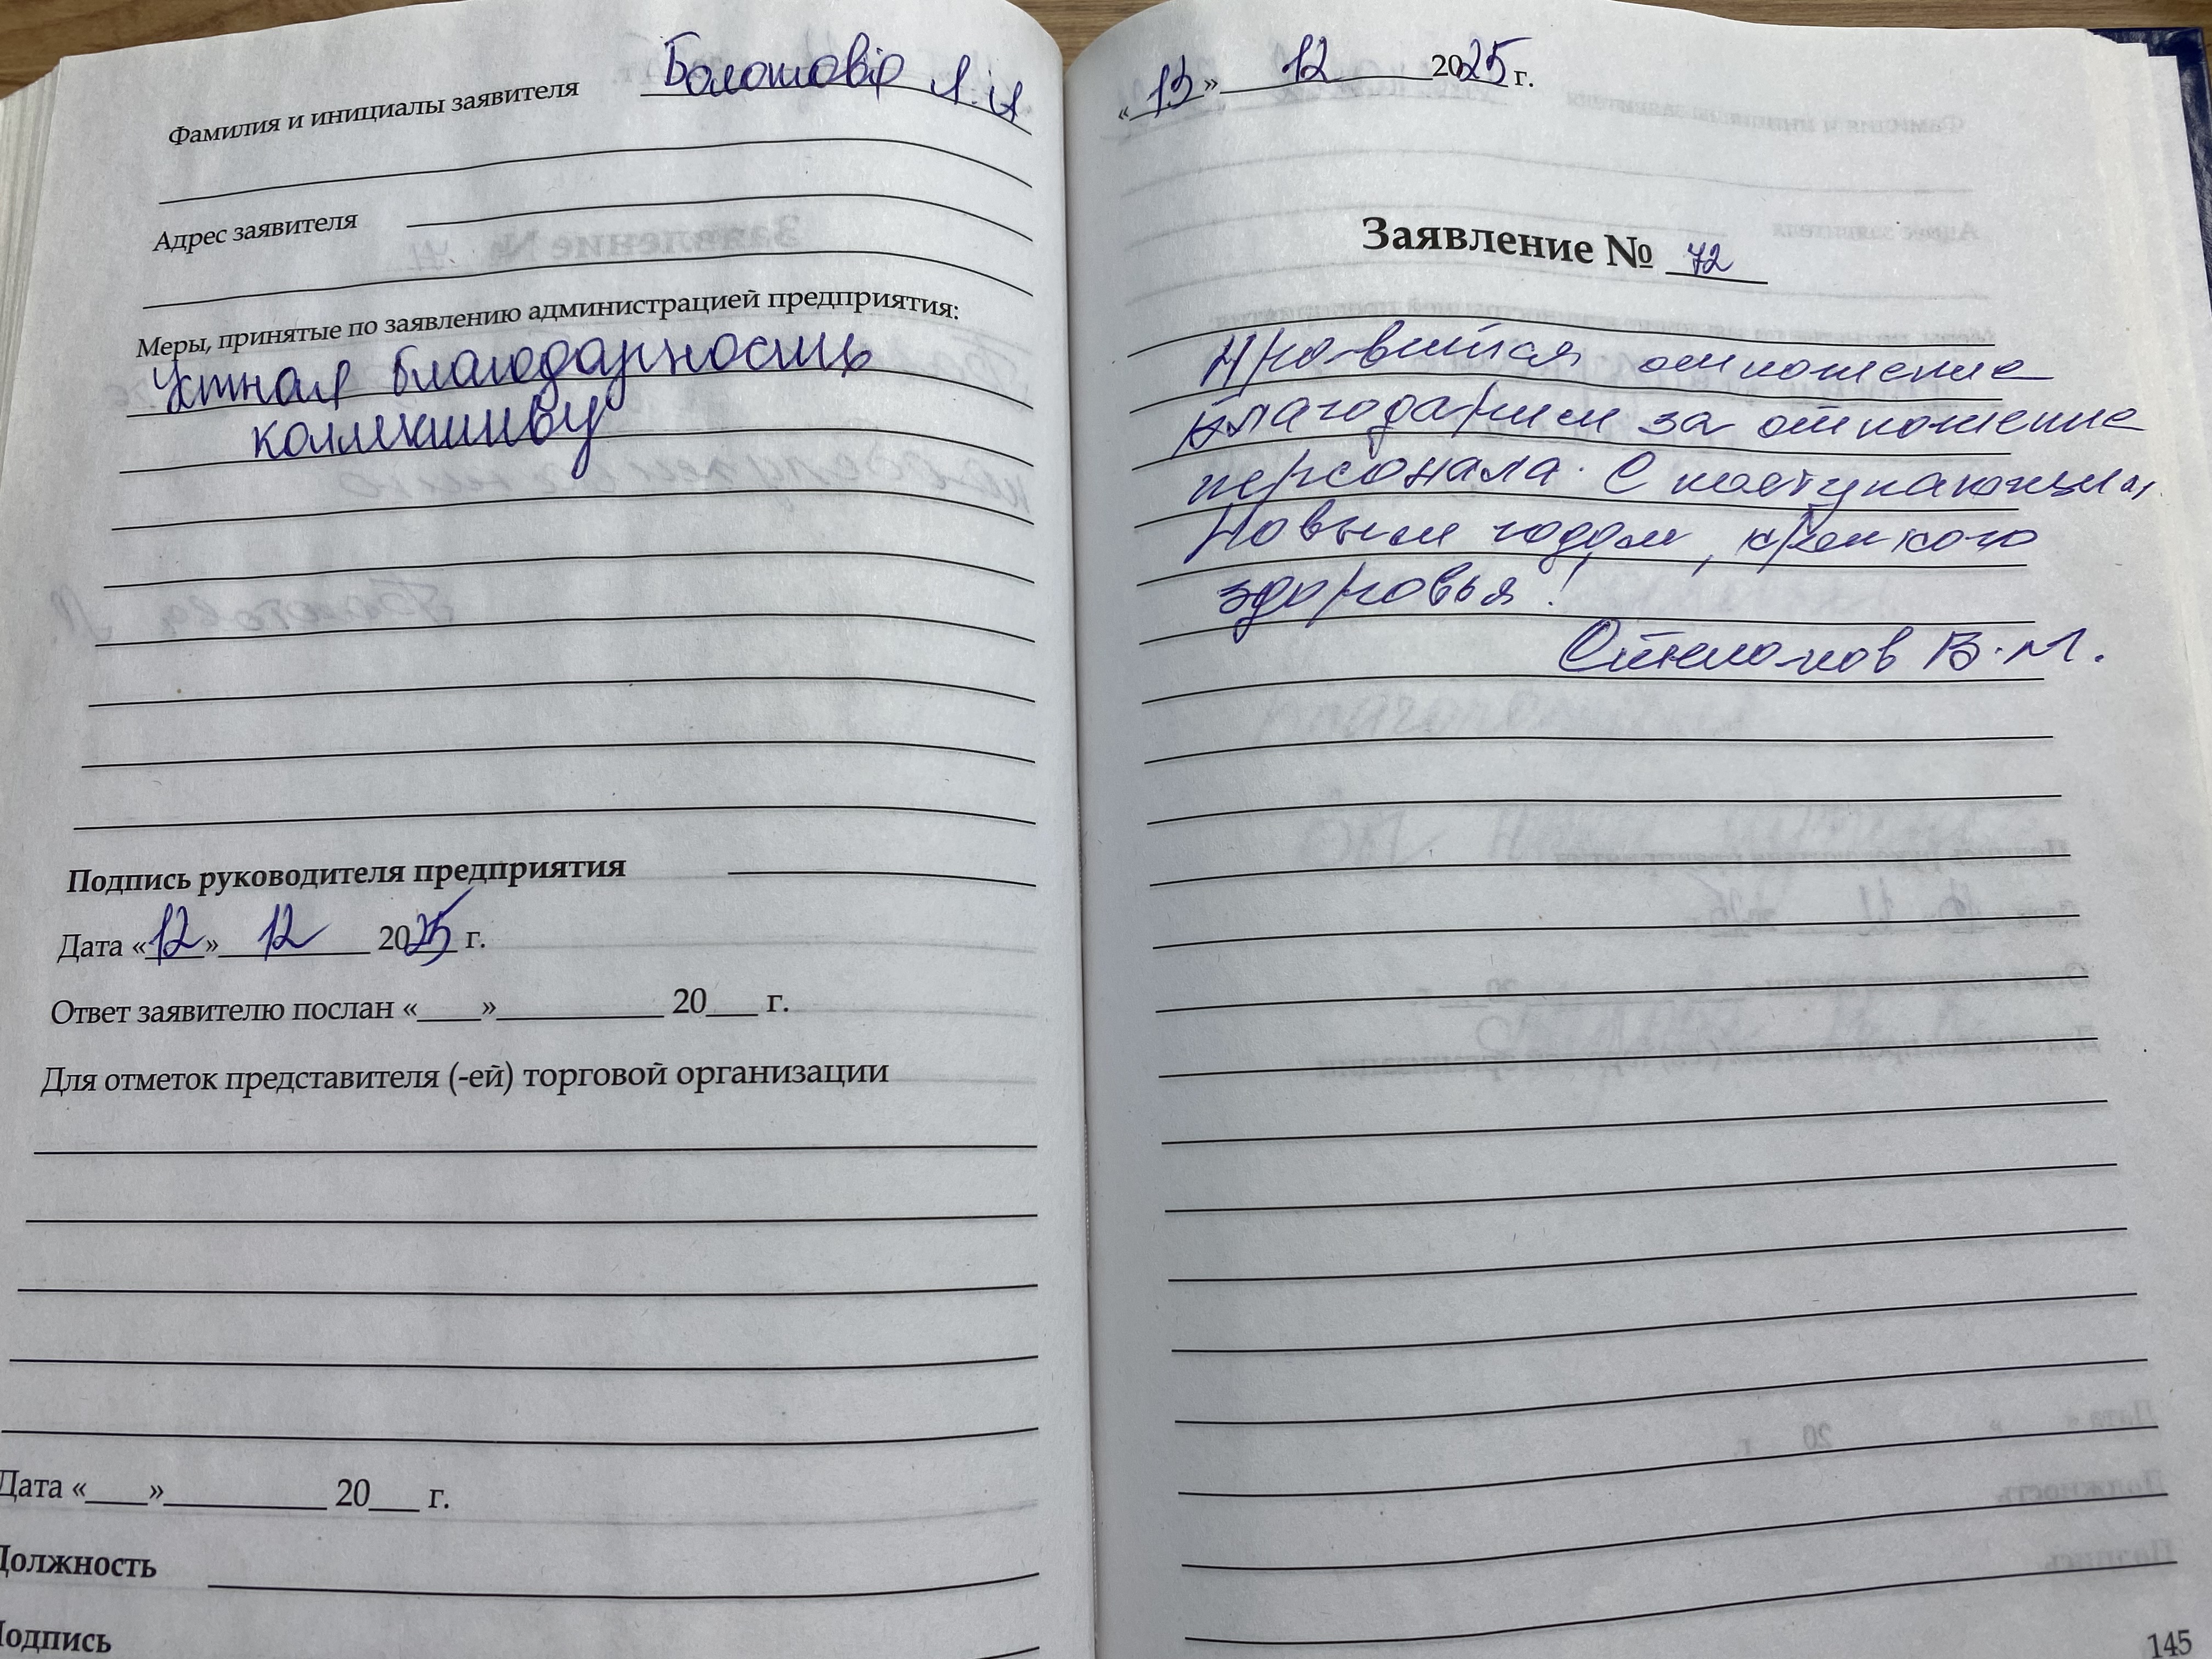 Фамилия и инициалы заявителя Болотова Л.И
Адрес заявителя
Меры, принятые по заявлению администрацией предприятия:
Устная благодарность
коллективу
Подпись руководителя предприятия
Дата «12» 12 2025 г.
Ответ заявителю послан «___»_________ 20___ г.
Для отметок представителя (-ей) торговой организации
Дата «___»_________ 20___ г.
Должность
Подпись
«13» 12 2025 г.
Заявление № 72
Нравится отношение
Благодарим за отношение
персонала. С наступающим
Новым годом, крепкого
здоровья!
В.М.
145